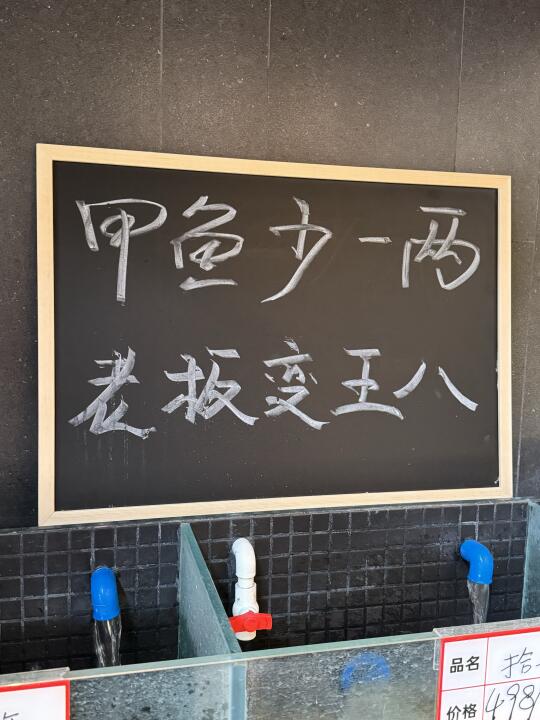 甲鱼少一两
老板变王八
品名 拾
价格 498